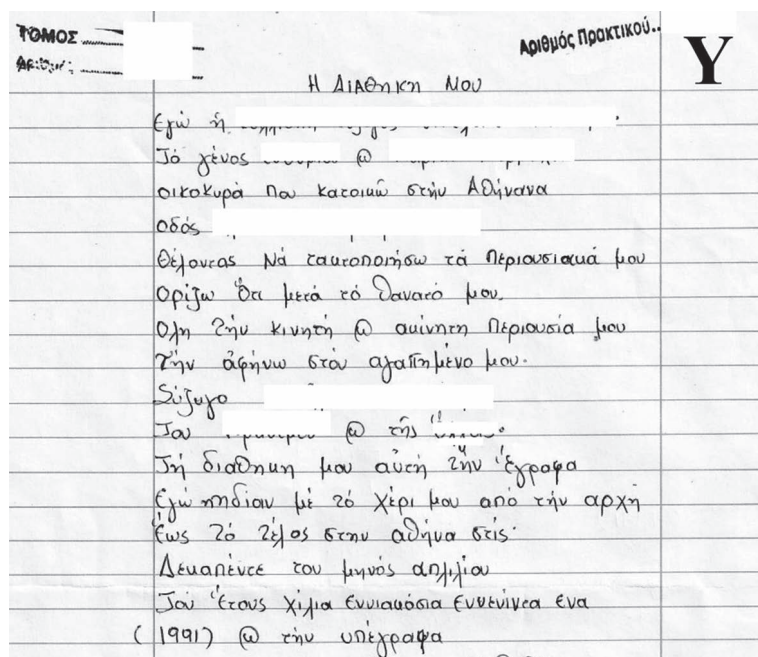 ΤΟΜΟΣ
Αριθμός
Αριθμός Πρακτικού..
Υ
Η ΔΙΑΘΗΚΗ ΜΟΥ
Εγώ ἡ
Τό γένος @
οικοκυρά που κατοικῶ στήν Αθήνανα
οδός
Θέλοντας Νά τακτοποιήσω τά Περιουσιακά μου
Ορίζω Ὅτι μετά τό θανατό μου.
Ολη Τήν κινητή @ ακίνητη Περιουσία μου
Τήν ἀφήνω στόν αγαπημένο μου.
Σύζυγο
Του @ τῆς
Τή διαθηκη μου αὐτή Τήν ἔγραψα
Εγώ μέ τό χέρι μου από τήν αρχή
Ἕως Τό Τέλος στην αθήνα στίς
Δεκαπέντε του μηνός απιλιου
Του Ἔτους χίλια Εννιακόσια Εννενίντα Ενα
(1991) @ τήν υπέγραψα